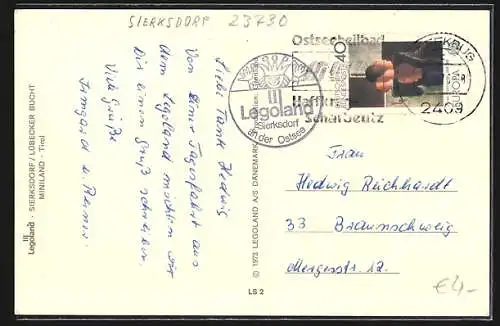 SIERKSDORF 23730
Ostseeheilbad
Haffkrug
Scharbeutz
HAFFKRUG
2409
40
EUROPA
Legoland
Sierksdorf
an der Ostsee
Liebe Tante Hedwig
Von einer Tagesfahrt aus
dem Legoland möchten wir
Dir einen Gruß schreiben.
Viele Grüße
Irmgard u. Reiner.
Frau
Hedwig Reichhardt
33 Braunschweig
Mergesstr. 12.
€4,-
© 1973 LEGOLAND A/S DÄNEMARK
LS 2
Legoland · SIERKSDORF/LÜBECKER BUCHT
MINILAND · Tirol